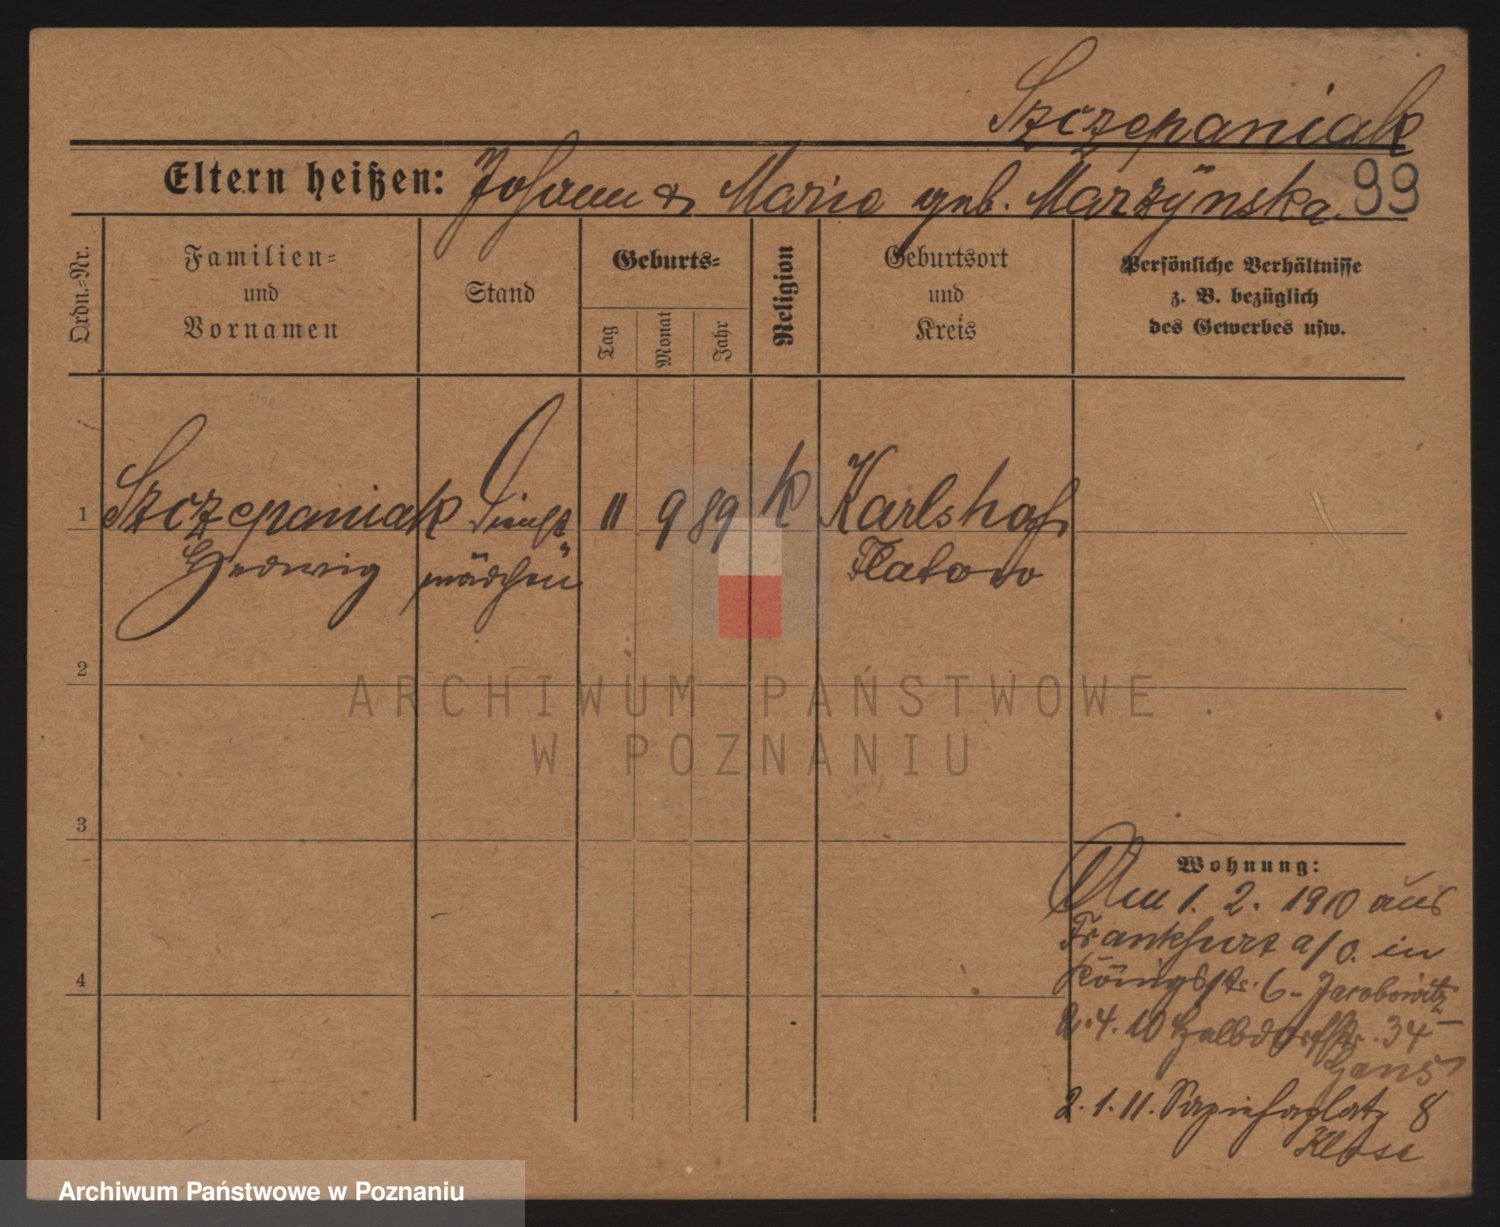 Szczepaniak
Eltern heißen: Johann & Maria geb. Marzynska. 99
Ordn.-Nr.
Familien-
und
Vornamen
Stand
Geburts-
Tag
Monat
Jahr
Religion
Geburtsort
und
Kreis
Persönliche Verhältnisse
z. B. bezüglich
des Gewerbes usw.
1 Szczepaniak Dienst 11 9 89 k Karlshof
Hedwig mädchen Flatow
2
3
4
Wohnung:
Am 1. 2. 1910 aus
Frankfurt a/O. in
Königstr. 6 - Jacobowitz
2.4.10 Halbdorfstr. 34 -
Hans
2.1.11. Sapiehaplatz 8
Klose
ARCHIWUM PAŃSTWOWE
W POZNANIU
Archiwum Państwowe w Poznaniu